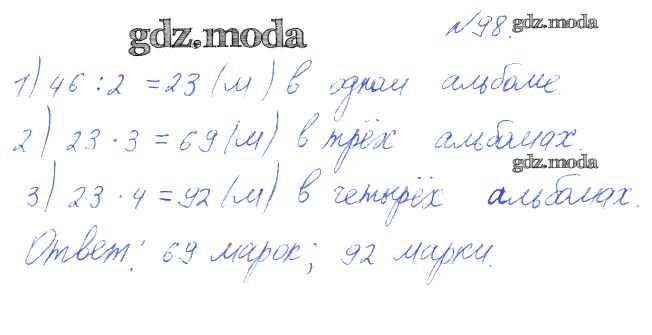 gdz.moda
№98. gdz.moda
1) 46 : 2 = 23 (м) в одном альбоме
2) 23 · 3 = 69 (м) в трёх альбомах.
gdz.moda
3) 23 · 4 = 92 (м) в четырёх альбомах.
Ответ: 69 марок; 92 марки.